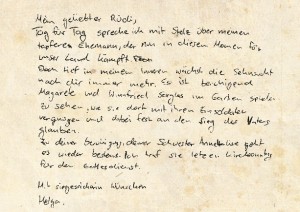 Mein geliebter Rüdi,
Tag für Tag spreche ich mit Stolz über meinen
tapferen Ehemann, der nun in diesen Momen für
unser Land kämpft.
Doch tief in meinem Innern wächst die Sehnsucht
nach dir immer mehr. Es ist beruhigend
Magarete und Winnfried sorglos im Garten spielen
zu sehen, wie sie dort mit ihren Einsoldaten
vergnügen und dabei fest an den Sieg des Vaters
glauben.
Zu deiner beruhigung, deiner Schwester Annelise geht
es wieder bestens. Ich traf sie letzten
den Gottesdienst.
M.L siegreichen Wünschen
Helga.